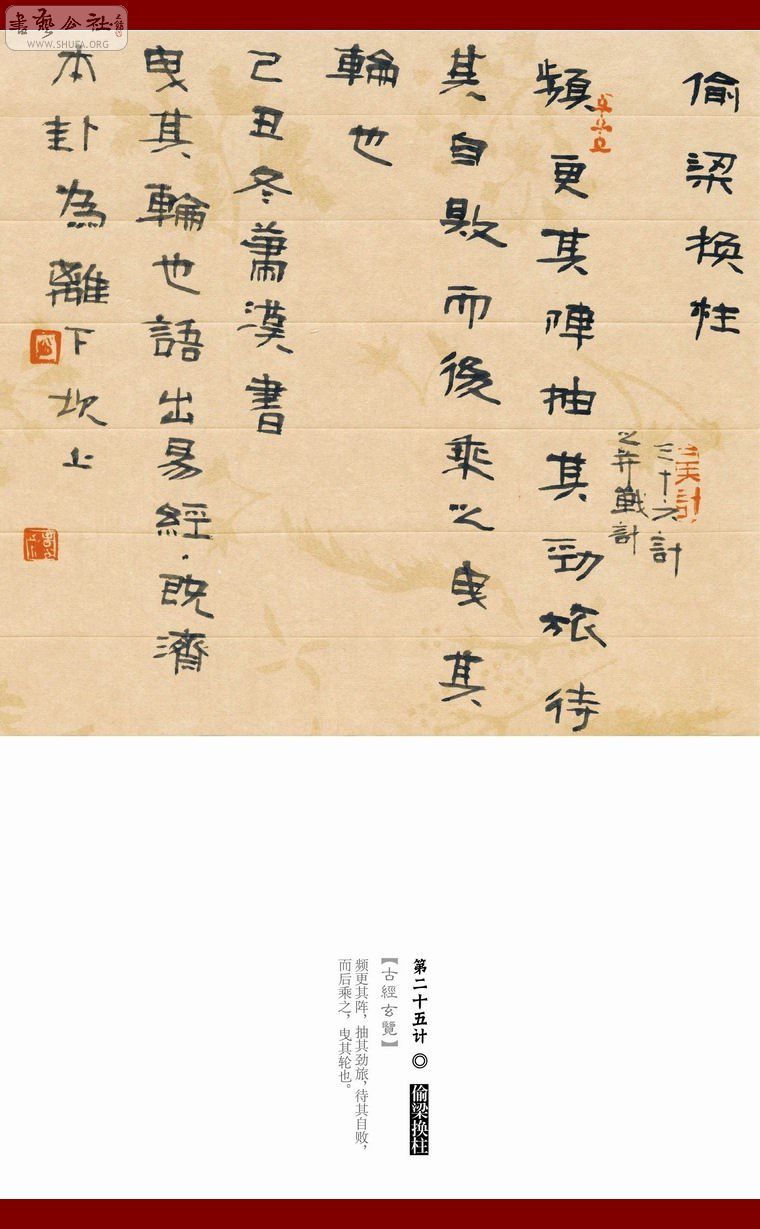 書藝公社
WWW.SHUFA.ORG
偷梁换柱
三十六計
之并戰計
頻更其陣抽其勁旅待
其自敗而後乘之曳其
輪也
己丑冬蕭漢書
曳其輪也語出易經·既濟
本卦為離下坎上
第二十五计 ◎ 偷梁换柱
【古經玄覽】
频更其阵，抽其劲旅，待其自败，
而后乘之，曳其轮也。